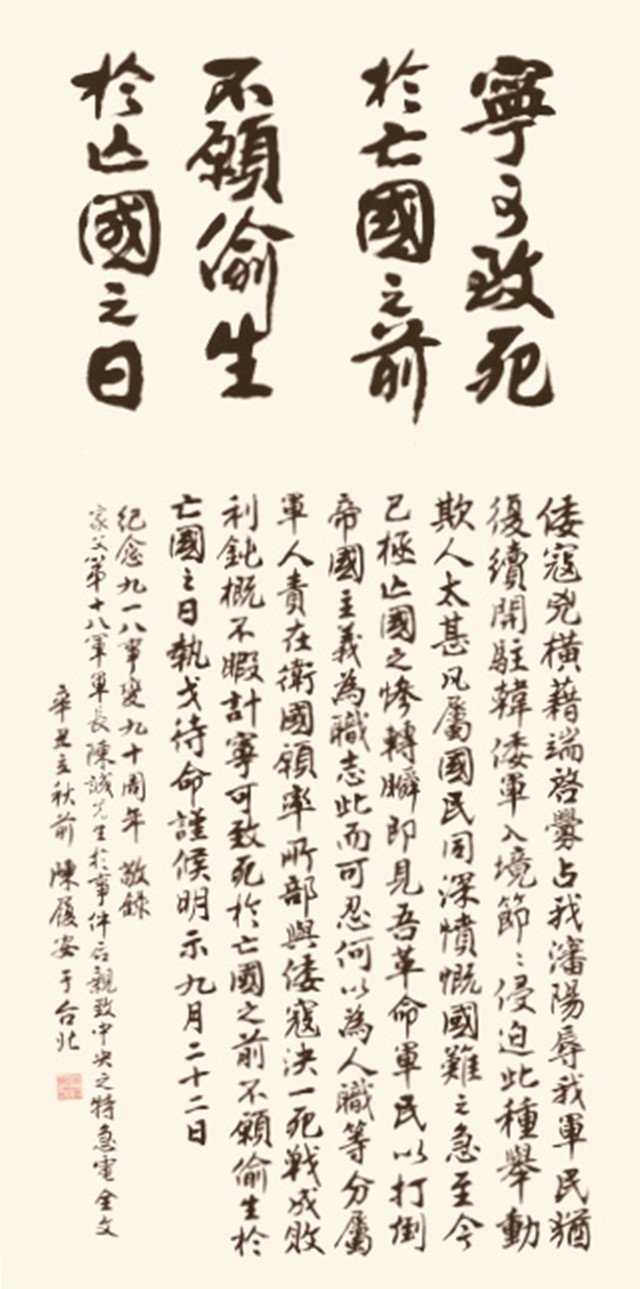 寧可致死
於亡國之前
不願偷生
於亡國之日
倭寇兇橫藉端啓釁占我瀋陽辱我軍民猶
復續開駐韓倭軍入境節〻侵迫此種舉動
欺人太甚凡屬國民同深憤慨國難之急至今
已極亡國之慘轉瞬即見吾革命軍民以打倒
帝國主義為職志此而可忍何以為人職等分屬
軍人責在衛國願率所部與倭寇決一死戰成敗
利鈍概不暇計寧可致死於亡國之前不願偷生於
亡國之日執戈待命謹候明示九月二十二日
紀念九一八事變九十周年 敬錄
家父第十八軍軍長陳誠先生於事件后親致中央之特急電全文
辛丑立秋前 陳履安于台北